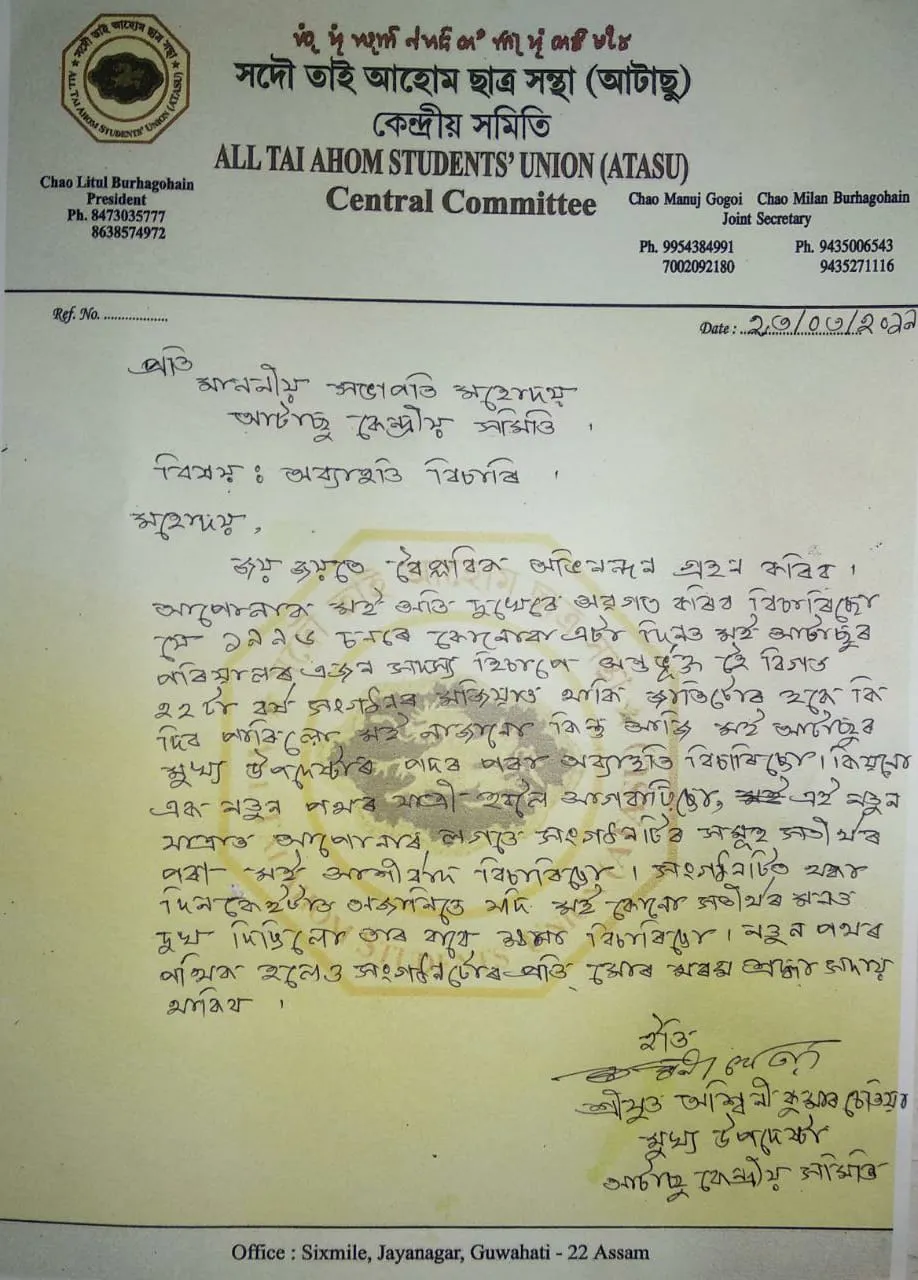 সদৌ তাই আহোম ছাত্ৰ সন্থা (আটাছু)
কেন্দ্ৰীয় সমিতি
ALL TAI AHOM STUDENTS' UNION (ATASU)
Central Committee
ALL TAI AHOM STUDENTS' UNION (ATASU)
Chao Litul Burhagohain
President
Ph. 8473035777
8638574972
Chao Manuj Gogoi Chao Milan Burhagohain
Joint Secretary
Ph. 9954384991 Ph. 9435006543
7002092180 9435271116
Ref. No. ..................
Date : ২৩/০৩/২০১৯
প্ৰতি
মাননীয় সভাপতি মহোদয়
আটাছু কেন্দ্ৰীয় সমিতি ।
বিষয় : অব্যাহতি বিচাৰি ।
মহোদয়,
জয় জয়তে বৈপ্লৱিক অভিনন্দন গ্ৰহন কৰিব ।
আপোনাক মই অতি দুখেৰে অৱগত কৰিব বিচাৰিছো
যে ১৯৯৬ চনৰে কোনোবা এটা দিনত মই আটাছুৰ
পৰিয়ালৰ এজন সদস্য হিচাপে অন্তৰ্ভূক্ত হৈ বিগত
২২টা বৰ্ষ সংগঠনৰ মজিয়াত থাকি জাতিটোৰ হকে কি
দিব পাৰিলো মই নাজানো কিন্তু আজি মই আটাছুৰ
মুখ্য উপদেষ্টাৰ পদৰ পৰা অব্যাহতি বিচাৰিছো। কিয়নো
এক নতুন পথৰ যাত্ৰী হবলৈ আগবাঢ়িছো, এই নতুন
যাত্ৰাত আপোনাৰ লগতে সংগঠনটিৰ সমূহ সতীৰ্থৰ
পৰা মই আশীৰ্বাদ বিচাৰিছো । সংগঠনটিত থকা
দিন কেইটাত অজানিতে যদি মই কোনো সতীৰ্থৰ মনত
দুখ দিছিলো তাৰ বাবে ক্ষমা বিচাৰিছো । নতুন পথৰ
পথিক হলেও সংগঠনটোৰ প্ৰতি মোৰ মৰম শ্ৰদ্ধা সদায়
থাকিব ।
ইতি
শ্ৰীযুত অশ্বিনী কুমাৰ চেতিয়া
মুখ্য উপদেষ্টা
আটাছু কেন্দ্ৰীয় সমিতি
Office : Sixmile, Jayanagar, Guwahati - 22 Assam